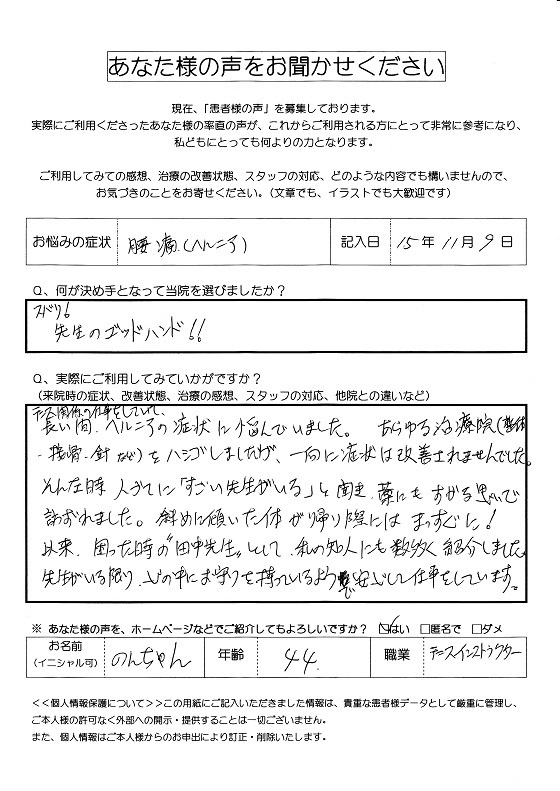 あなた様の声をお聞かせください
現在、「患者様の声」を募集しております。
実際にご利用くださったあなた様の率直の声が、これからご利用される方にとって非常に参考になり、
私どもにとっても何よりの力となります。
ご利用してみての感想、治療の改善状態、スタッフの対応、どのような内容でも構いませんので、
お気づきのことをお寄せください。(文章でも、イラストでも大歓迎です)
お悩みの症状 腰痛(ヘルニア) 記入日 15年11月9日
Q、何が決め手となって当院を選びましたか?
ズバリ!
先生のゴッドハンド!!
Q、実際にご利用してみていかがですか?
(来院時の症状、改善状態、治療の感想、スタッフの対応、他院との違いなど)
テニス関係の仕事をしていて、
長い間、ヘルニアの症状に悩んでいました。 あらゆる治療院(整体
・接骨・針など)をハシゴしましたが、一向に症状は改善されませんでした。
そんな時 人づてに「すごい先生がいる」と聞き、藁にもすがる思いで
訪ずれました。斜めに傾いた体が帰り際にはまっすぐに!
以来、困った時の"田中先生"として、私の知人にも数多く紹介しました。
先生がいる限り、心の中にお守りを持っているようで安心して仕事をしています。
※ あなた様の声を、ホームページなどでご紹介してもよろしいですか? ☑はい □匿名で □ダメ
お名前 (イニシャル可) のんちゃん 年齢 44 職業 テニスインストラクター
<<個人情報保護について>>この用紙にご記入いただきました情報は、貴重な患者様データとして厳重に管理し、
ご本人様の許可なく外部への開示・提供することは一切ございません。
また、個人情報はご本人様からのお申出により訂正・削除いたします。